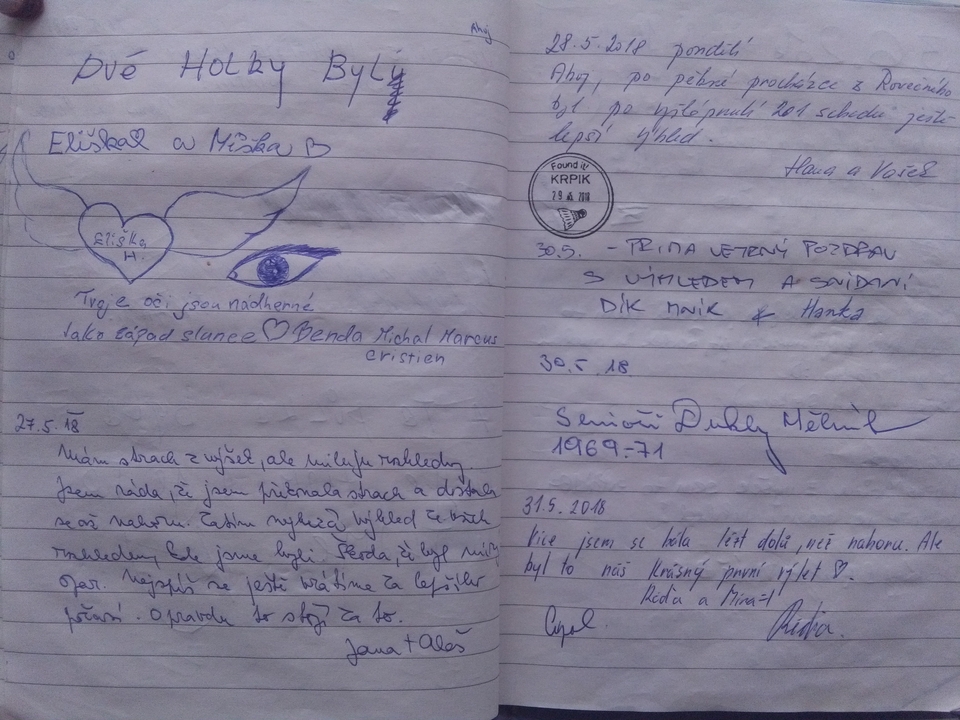 Dvě Holky Byly
Eliška a Miška
Eliška
H.
Tvoje oči jsou nádherné
Jako západ slunce Benda Michal Marcus
Cristien
27.5.18
Mám strach z výšek, ale miluju rozhledny.
Jsem ráda, že jsem překonala strach a dostala
se až nahoru. Zatím nejhezčí výhled ze všech
rozhleden, kde jsme byli. Škoda, že byl
opar. Nejspíš se ještě vrátíme za lepšího
počasí. Opravdu to stojí za to.
Jana + Aleš
Ahoj
28.5.2018 pondělí
Ahoj, po pěkné procházce z Rovečného
byl po vyšlápnutí 201 schodů ještě
lepší výhled.
Hana a Vašek
Found it!
KRPIK
30.5. - PRIMA VĚTRNÝ POZDRAV
S VÝHLEDEM A SNÍDANÍ
DÍK MNÍK & Hanka
30.5.18
Senioři Dukly Mělník
1969-71
31.5.2018
Více jsem se bála lézt dolů, než nahoru. Ale
byl to náš krásný první výlet.
Radia.